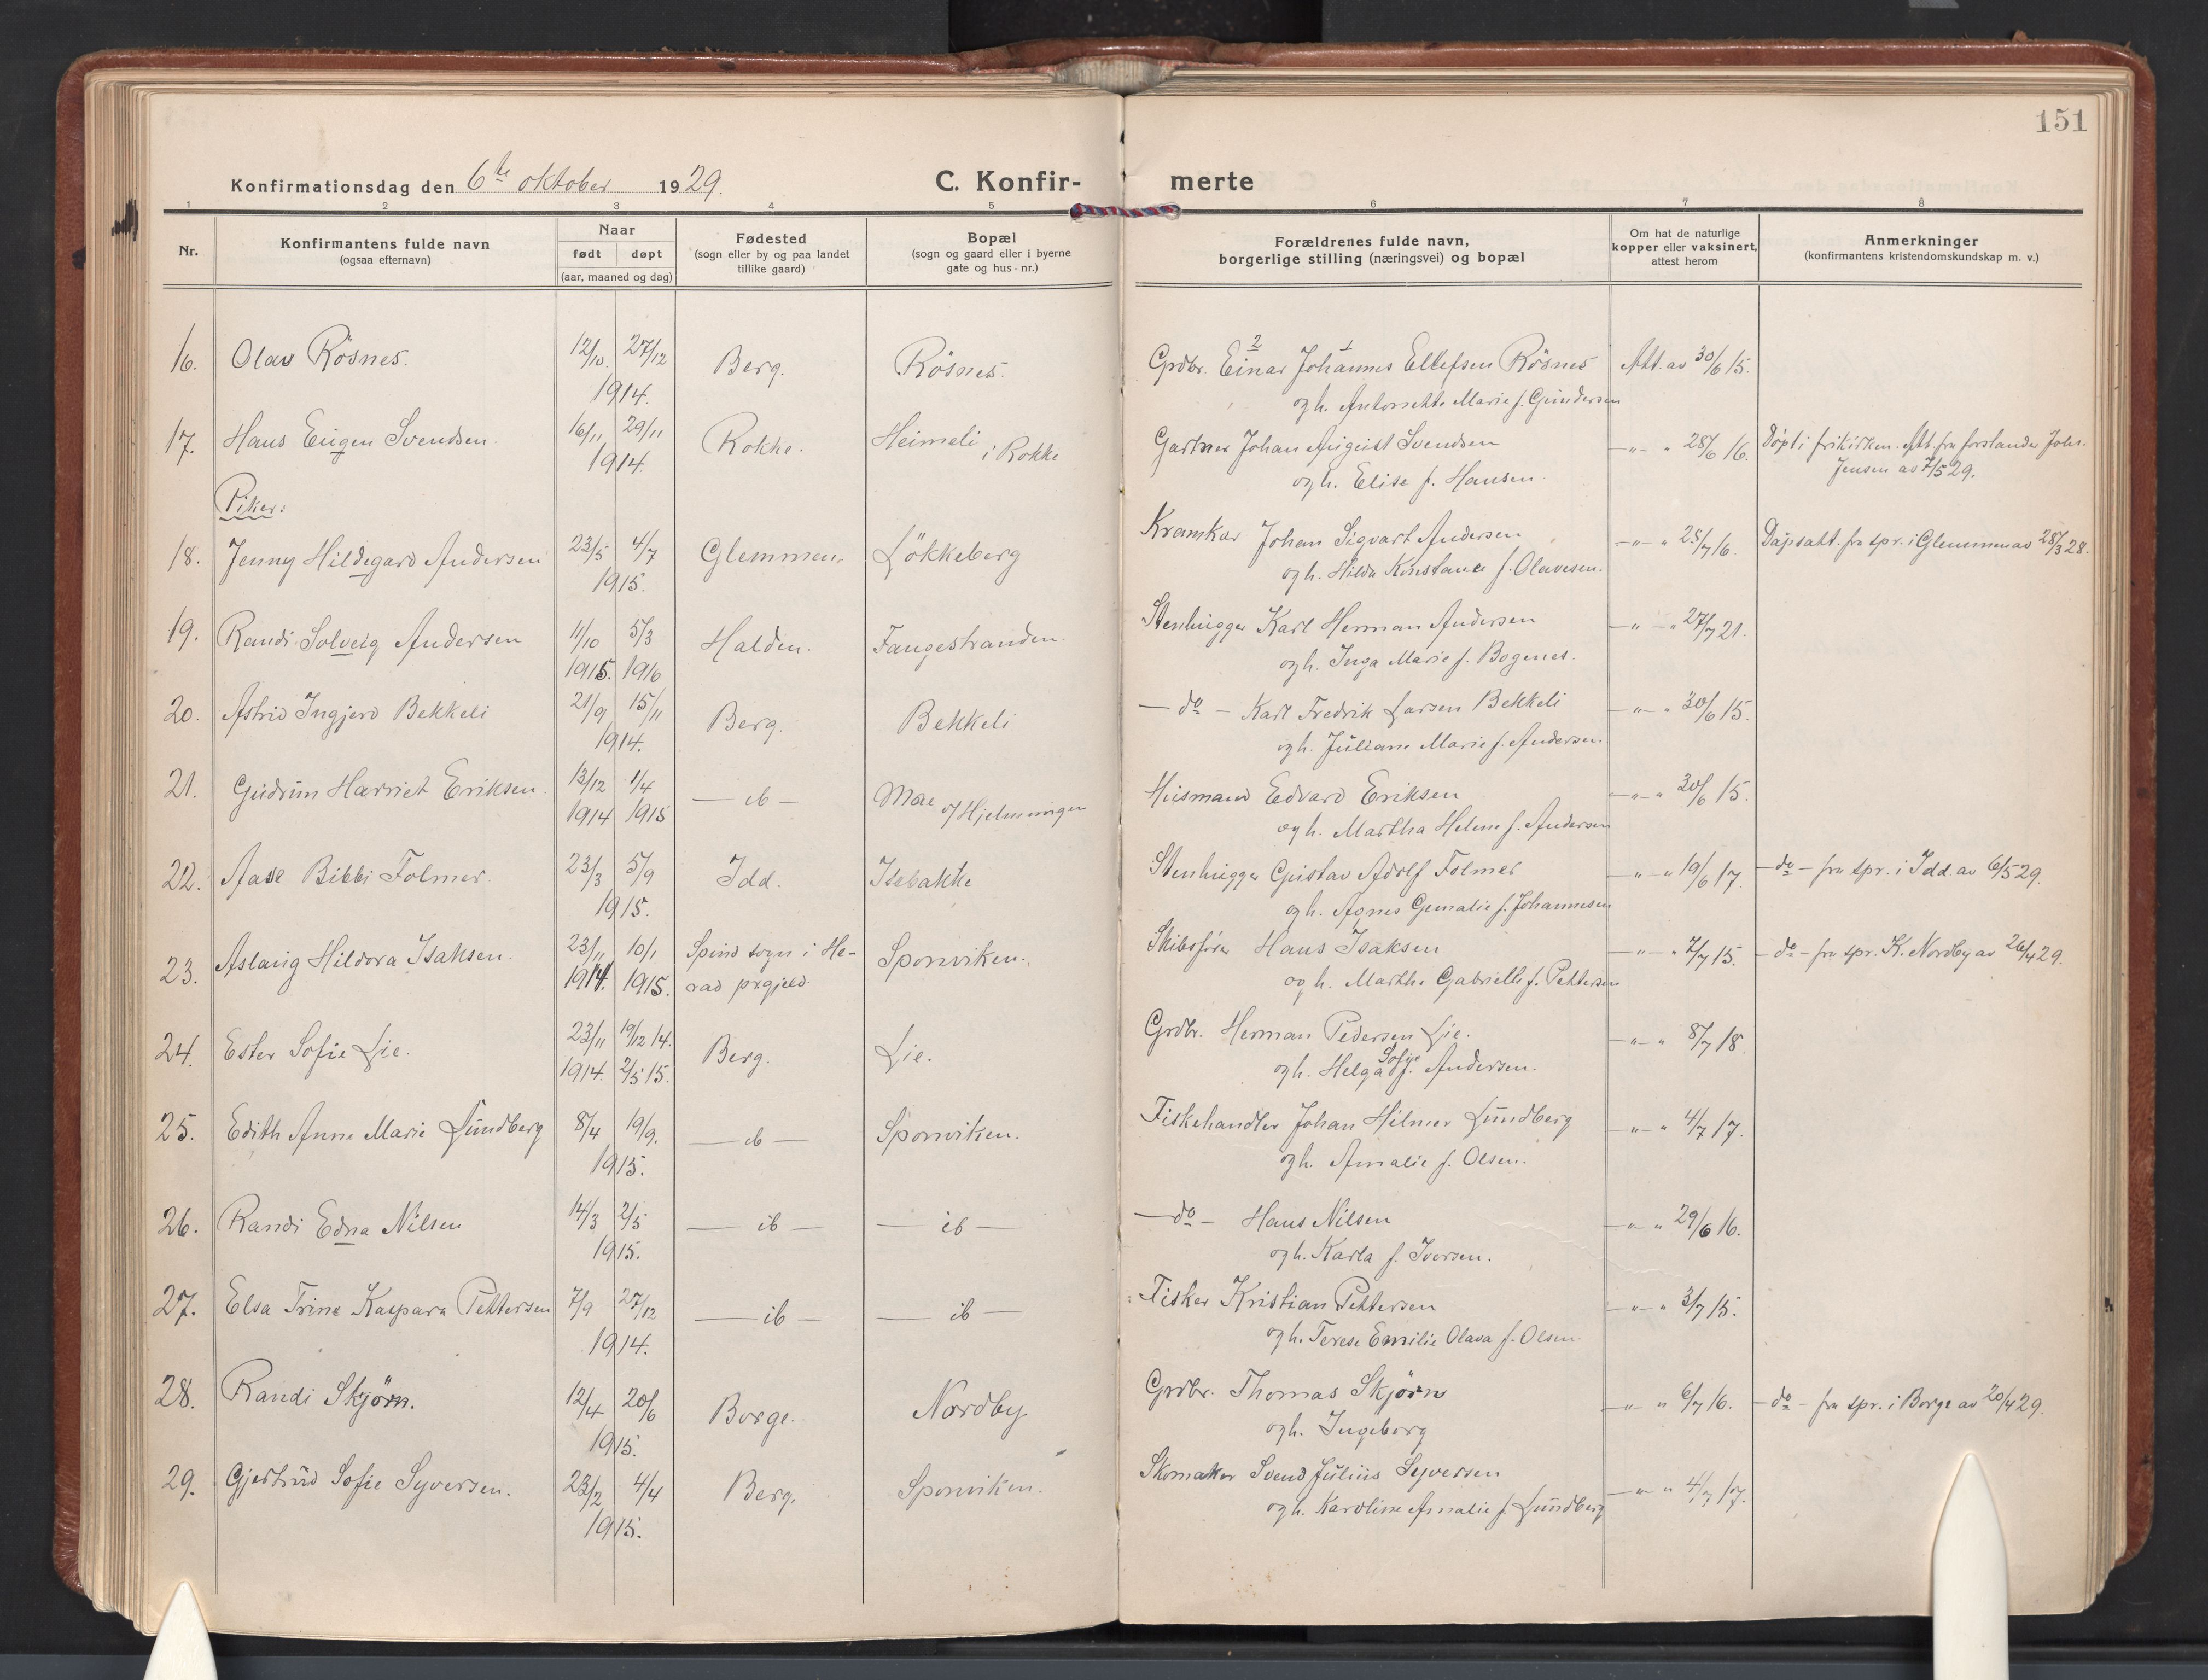 151
Konfirmationsdag den 6te oktober 1929. C. Konfir- merte
1 2 3 4 5 6 7 8
Nr. Konfirmantens fulde navn (ogsaa efternavn) Naar født døpt (aar, maaned og dag) Fødested (sogn eller by og paa landet tillike gaard) Bopæl (sogn og gaard eller i byerne gate og hus-nr.) Forældrenes fulde navn, borgerlige stilling (næringsvei) og bopæl Om hat de naturlige kopper eller vaksinert, attest herom Anmerkninger (konfirmantens kristendomskundskap m. v.)
16. Olav Rösnes. 12/10. 27/12 Berg. Rösnes. Grdbr. Einar Johannes Ellefsen Rösnes Att. av 30/6 15.
2 1
1914. og h. Antonette Marie f. Gundersen
17. Hans Eugen Svendsen. 16/11 29/11 Rokke. Heimeli i Rokke Gartner Johan August Svendsen -"- " 28/6 16. Döpt i frikirken. Att. fra forstander Johs.
1914. og h. Elise f. Hansen. Jensen av 7/5 29.
Piker:
18. Jenny Hildegard Andersen 23/5 4/7 Glemmen. Lökkeberg Kramkar Johan Sigvart Andersen -"- " 25/7 16. Dåpsatt. fra spr. i Glemmen av 28/3 28.
1915. og h. Hilda Konstance f. Olavesen.
19. Randi Solveig Andersen 11/10 5/3 Halden. Fangestranden. Stenhugger Karl Herman Andersen -"- " 27/7 21.
1915. 1916 og h. Inga Marie f. Bogenes.
20. Astrid Ingjerd Bekkeli 21/9 15/11 Berg. Bekkeli - do - Karl Fredrik Larsen Bekkeli -"- " 30/6 15.
1914. og h. Juliane Marie f. Andersen.
21. Gudrun Harriet Eriksen. 13/12 1/4 - ib - Moe u/Hjelmungen Husmand Edvard Eriksen -"- " 30/6 15.
1914 1915 og h. Martha Helene f. Andersen
22. Aase Bibbi Folmer. 23/3 5/9 Idd. Isebakke Stenhugger Gustav Adolf Folmer -"- " 19/6 17. - do - fra spr. i Idd av 6/5 29.
1915. og h. Agnes Gunalie f. Johannesen
23. Aslaug Hildora Isaksen. 23/11 10/1 Spind sogn i He- Sponviken. Skibsförer Hans Isaksen -"- " 7/7 15. - do - fra spr. K. Nordby av 26/4 29.
1914. 1915. rad prgjeld. og h. Marthe Gabrielle f. Pettersen
24. Ester Sofie Lie. 23/11 19/12 14. Berg. Lie. Grdbr. Herman Pedersen Lie. -"- " 8/7 18
1914. 2/5 15. og h. Helga Sofie f. Andersen.
25. Edith Anne Marie Lundberg 8/4 19/9. - ib - Sponviken. Fiskehandler Johan Hilmer Lundberg -"- " 4/7 17.
1915. og h. Amalie f. Olsen.
26. Randi Edna Nilsen 14/3 2/5 - ib - - ib - - do - Hans Nilsen -"- " 29/6 16.
1915. og h. Karla f. Iversen.
27. Elsa Trine Kaspara Pettersen 7/9 27/12 - ib - - ib - Fisker Kristian Pettersen -"- " 3/7 15.
1914. og h. Terese Emilie Olava f. Olsen.
28. Randi Skjörn. 12/4 20/6 Borge. Nordby Grdbr. Thomas Skjörn -"- " 6/7 16. - do - fra spr. i Borge av 20/4 29.
1915. og h. Ingeborg
29. Gjertrud Sofie Syversen. 23/2 4/4 Berg. Sponviken. Skomaker Svend Julius Syversen -"- " 4/7 17.
1915. og h. Karoline Amalie f. Lundberg